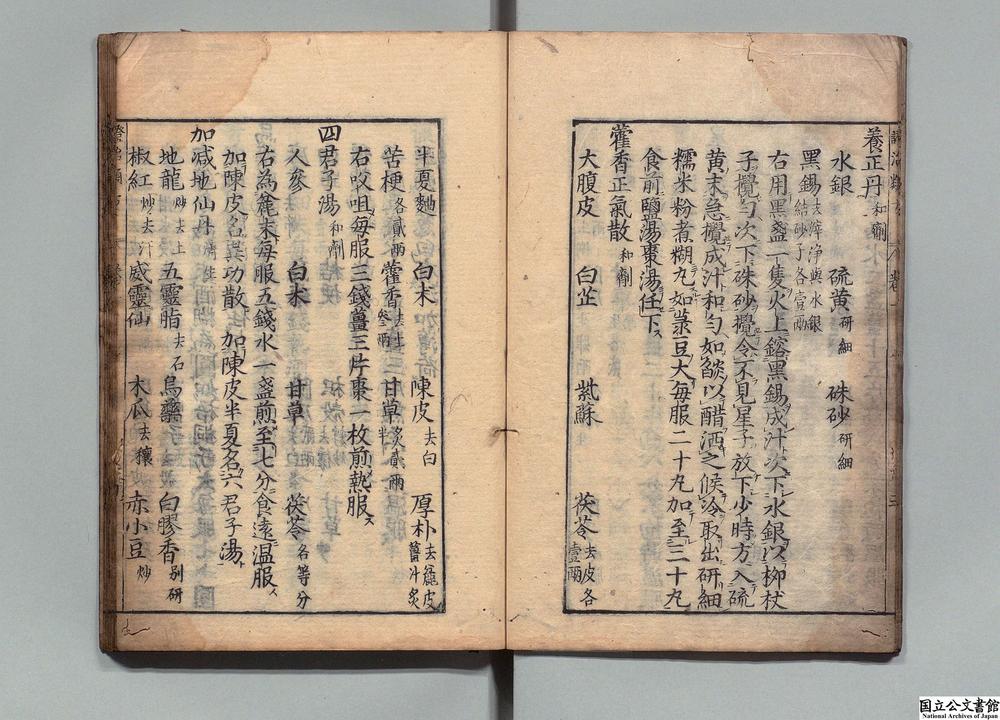 養正丹和劑
水銀 硫黃研細 硃砂研細
黑錫去滓浄與水銀結砂子各壹兩
右用黑盞一隻火上鎔黑錫成汁次下水銀以柳杖
子攪勻次下硃砂攪令不見星子放下少時方入硫
黃末急攪成汁和勻如𦦨以醋洒之候冷取出研細
糯米粉煮糊丸如菉豆大每服二十九加至三十丸
食前鹽湯棗湯任下
藿香正氣散和劑
大腹皮 白芷 紫蘇 茯苓去皮各壹兩
半夏麯 白朮 陳皮去白 厚朴去麄皮薑汁炙
苦梗各貳兩 藿香去土參兩 甘草炙貳兩半
右㕮咀每服三錢薑三片棗一枚煎熱服
四君子湯和劑
人參 白朮 甘草 茯苓各等分
右為麄末每服五錢水一盞煎至七分食遠温服
加陳皮名異功散 加陳皮半夏名六君子湯
加減地仙丹
地龍炒去土 五靈脂去石 烏藥 白膠香別研
椒紅炒去汗 威靈仙 木瓜去穰 赤小豆炒
国立公文書館
National Archives of Japan